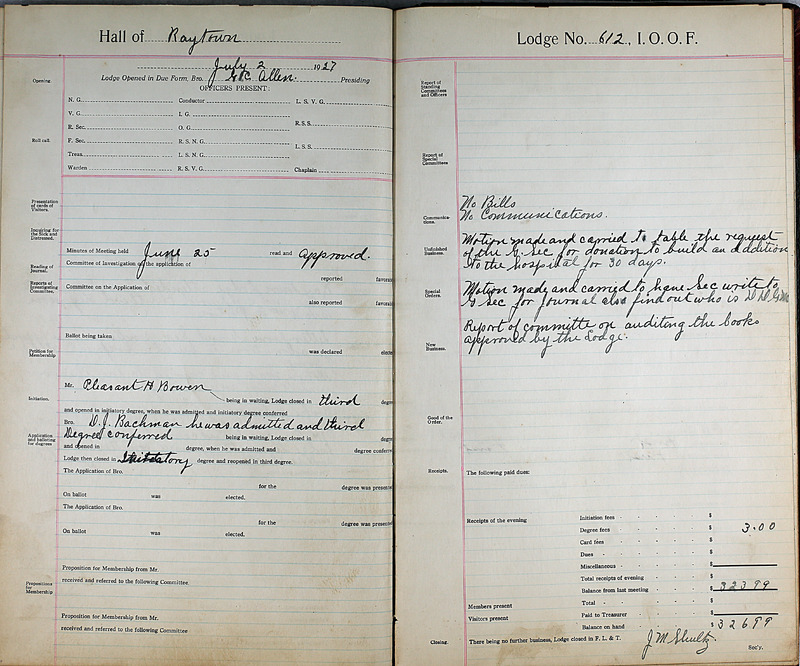 Hall of Raytown
July 2 1927
Opening.
Lodge Opened in Due Form, Bro. Allen. Presiding
OFFICERS PRESENT:
N. G. Conductor L. S. V. G.
V. G. I. G. R.S.S.
R. Sec. O. G.
Roll call.
F. Sec. R. S. N. G. L. S. S.
Treas. L. S. N. G.
Warden R. S. V. G. Chaplain
Presentation
of cards of
Visitors.
Inquiring for
the Sick and
Distressed.
Minutes of Meeting held June 25 read and approved.
Reading of
Journal.
Committee of Investigation of the application of
reported favora
Reports of
Investigating
Committee.
Committee on the Application of
also reported favora
Ballot being taken
was declared elected
Petition for
Membership
Mr. Pleasant H Bowen
Initiation.
being in waiting, Lodge closed in third degre
and opened in initiatory degree, when he was admitted and initiatory degree conferred
Bro. D. J. Bachman he was admitted and third
Degree conferred being in waiting, Lodge closed in degre
Application
and balloting
for degrees
and opened in degree, when he was admitted and degree conferre
Lodge then closed in degree and reopened in third degree.
The Application of Bro.
for the degree was presente
On ballot was elected.
The Application of Bro.
for the degree was presente
On ballot was elected.
Proposition for Membership from Mr.
received and referred to the following Committee.
Propositions
for
Membership
Proposition for Membership from Mr.
received and referred to the following Committee
Lodge No. 612, I. O. O. F.
Report of
Standing
Committees
and Officers
Report of
Special
Committees
No Bills
No Communications.
Communica-
tions.
Motion made and carried to table the request
of the G. Sec for donation to build an addition
to the hospital for 30 days.
Unfinished
Business.
Motion made and carried to have Sec write to
G Sec for Journal also find out who is D D G M
Special
Orders.
Report of committe on auditing the books
approved by the Lodge.
New
Business.
Good of the
Order.
Receipts.
The following paid dues:
Receipts of the evening Initiation fees $
Degree fees $ 3.00
Card fees $
Dues $
Miscellaneous $
Total receipts of evening $
Balance from last meeting $ 32399
Members present Total $
Visitors present Paid to Treasurer $
Balance on hand $ 32699
Closing.
There being no further business, Lodge closed in F. L. & T. J M Shultz. Sec'y.